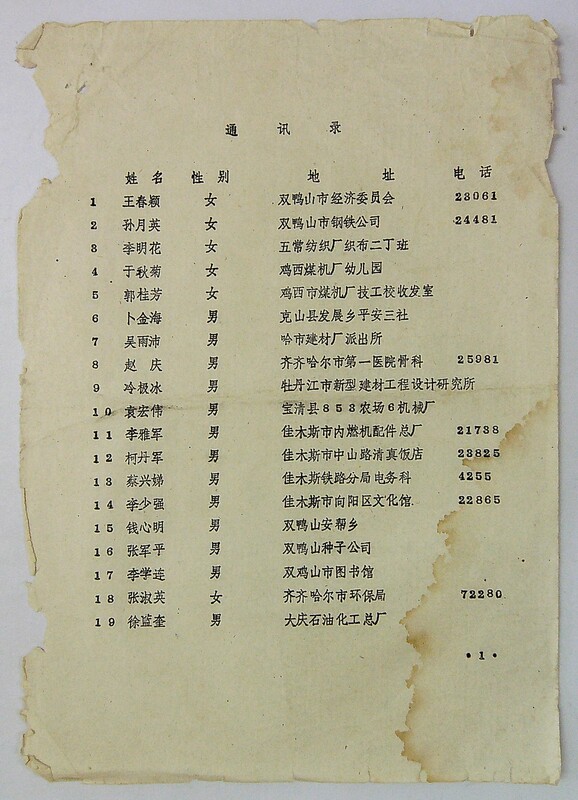 通讯录
姓名 性别 地址 电话
1 王春颖 女 双鸭山市经济委员会 23061
2 孙月英 女 双鸭山市钢铁公司 24481
3 李明花 女 五常纺织厂织布二丁班
4 于秋菊 女 鸡西煤机厂幼儿园
5 郭桂芳 女 鸡西市煤机厂技工校收发室
6 卜金海 男 克山县发展乡平安三社
7 吴雨沛 男 哈市建材厂派出所
8 赵庆 男 齐齐哈尔市第一医院骨科 25981
9 冷极冰 男 牡丹江市新型建材工程设计研究所
10 袁宏伟 男 宝清县853农场6机械厂
11 李雅军 男 佳木斯市内燃机配件总厂 21738
12 柯丹军 男 佳木斯市中山路清真饭店 23825
13 蔡兴娣 男 佳木斯铁路分局电务科 4255
14 李少强 男 佳木斯市向阳区文化馆 22865
15 钱心明 男 双鸭山安帮乡
16 张军平 男 双鸭山种子公司
17 李学连 男 双鸡山市图书馆
18 张淑英 女 齐齐哈尔市环保局 72280
19 徐监奎 男 大庆石油化工总厂
·1·